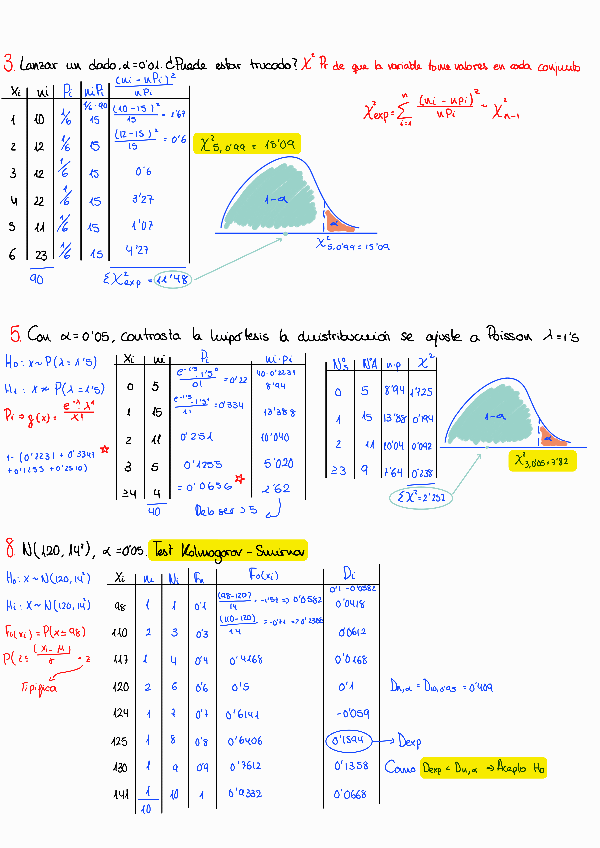 3. Lanzar un dado. α=0'01. ¿Puede estar trucado? χ² Pi de que la variable tome valores en cada conjunto
xi ni Pi niPi (ni-nPi)²/nPi
1/6·90
1 10 1/6 15 (10-15)²/15 = 1'67
2 12 1/6 15 (12-15)²/15 = 0'6
3 12 1/6 15 0'6
4 22 1/6 15 3'27
5 11 1/6 15 1'07
6 23 1/6 15 4'27
90 Σχ²exp = 11'48
χ²exp = Σ (ni-nPi)²/nPi ~ χ²n-1
χ²5,0'99 = 15'09
1-α
α
χ²5,0'99 = 15'09
5. Con α=0'05, contrasta la hipótesis la distribución se ajuste a Poisson λ=1'5
H0: x~P(λ=1'5)
H1: x≁P(λ=1'5)
1-(0'2231+0'3347
+0'1255+0'2510)
xi ni Pi ni·Pi
0 5 e^-1'5·1'5⁰/0! = 0'22 40·0'2231
8'94
1 15 e^-1'5·1'5¹/1! = 0'334 13'388
2 11 0'251 10'040
3 5 0'1255 5'020
≥4 4 = 0'0656 2'62
40 Debo ser >5
n·p χ²
0 5 8'94 1'725
1 15 13'88 0'194
2 11 10'04 0'092
≥3 9 7'64 0'238
Σχ²=2'252
1-α
α
χ²3,0'05=7'82
8. N(120,14²), α=0'05. Test Kolmogorov-Smirnov
H0: x~N(120,14²)
H1: x≁N(120,14²)
F0(xi)=P(x≤98)
Tipifica
xi ni Ni Fn F0(xi) Di
0'1-0'0582
98 1 1 0'1 (98-120)/14 = -1'57 => 0'0582 0'0418
110 2 3 0'3 (110-120)/14 = -0'71 => 0'2388 0'0612
117 1 4 0'4 0'4168 0'0168
120 2 6 0'6 0'5 0'1
124 1 7 0'7 0'6141 -0'059
125 1 8 0'8 0'6406 0'1594 → Dexp
130 1 9 0'9 0'7612 0'1358
141 1 10 1 0'9332 0'0668
10
Dn,α = D10,0'95 = 0'409
Como Dexp < Dn,α → Acepto H0